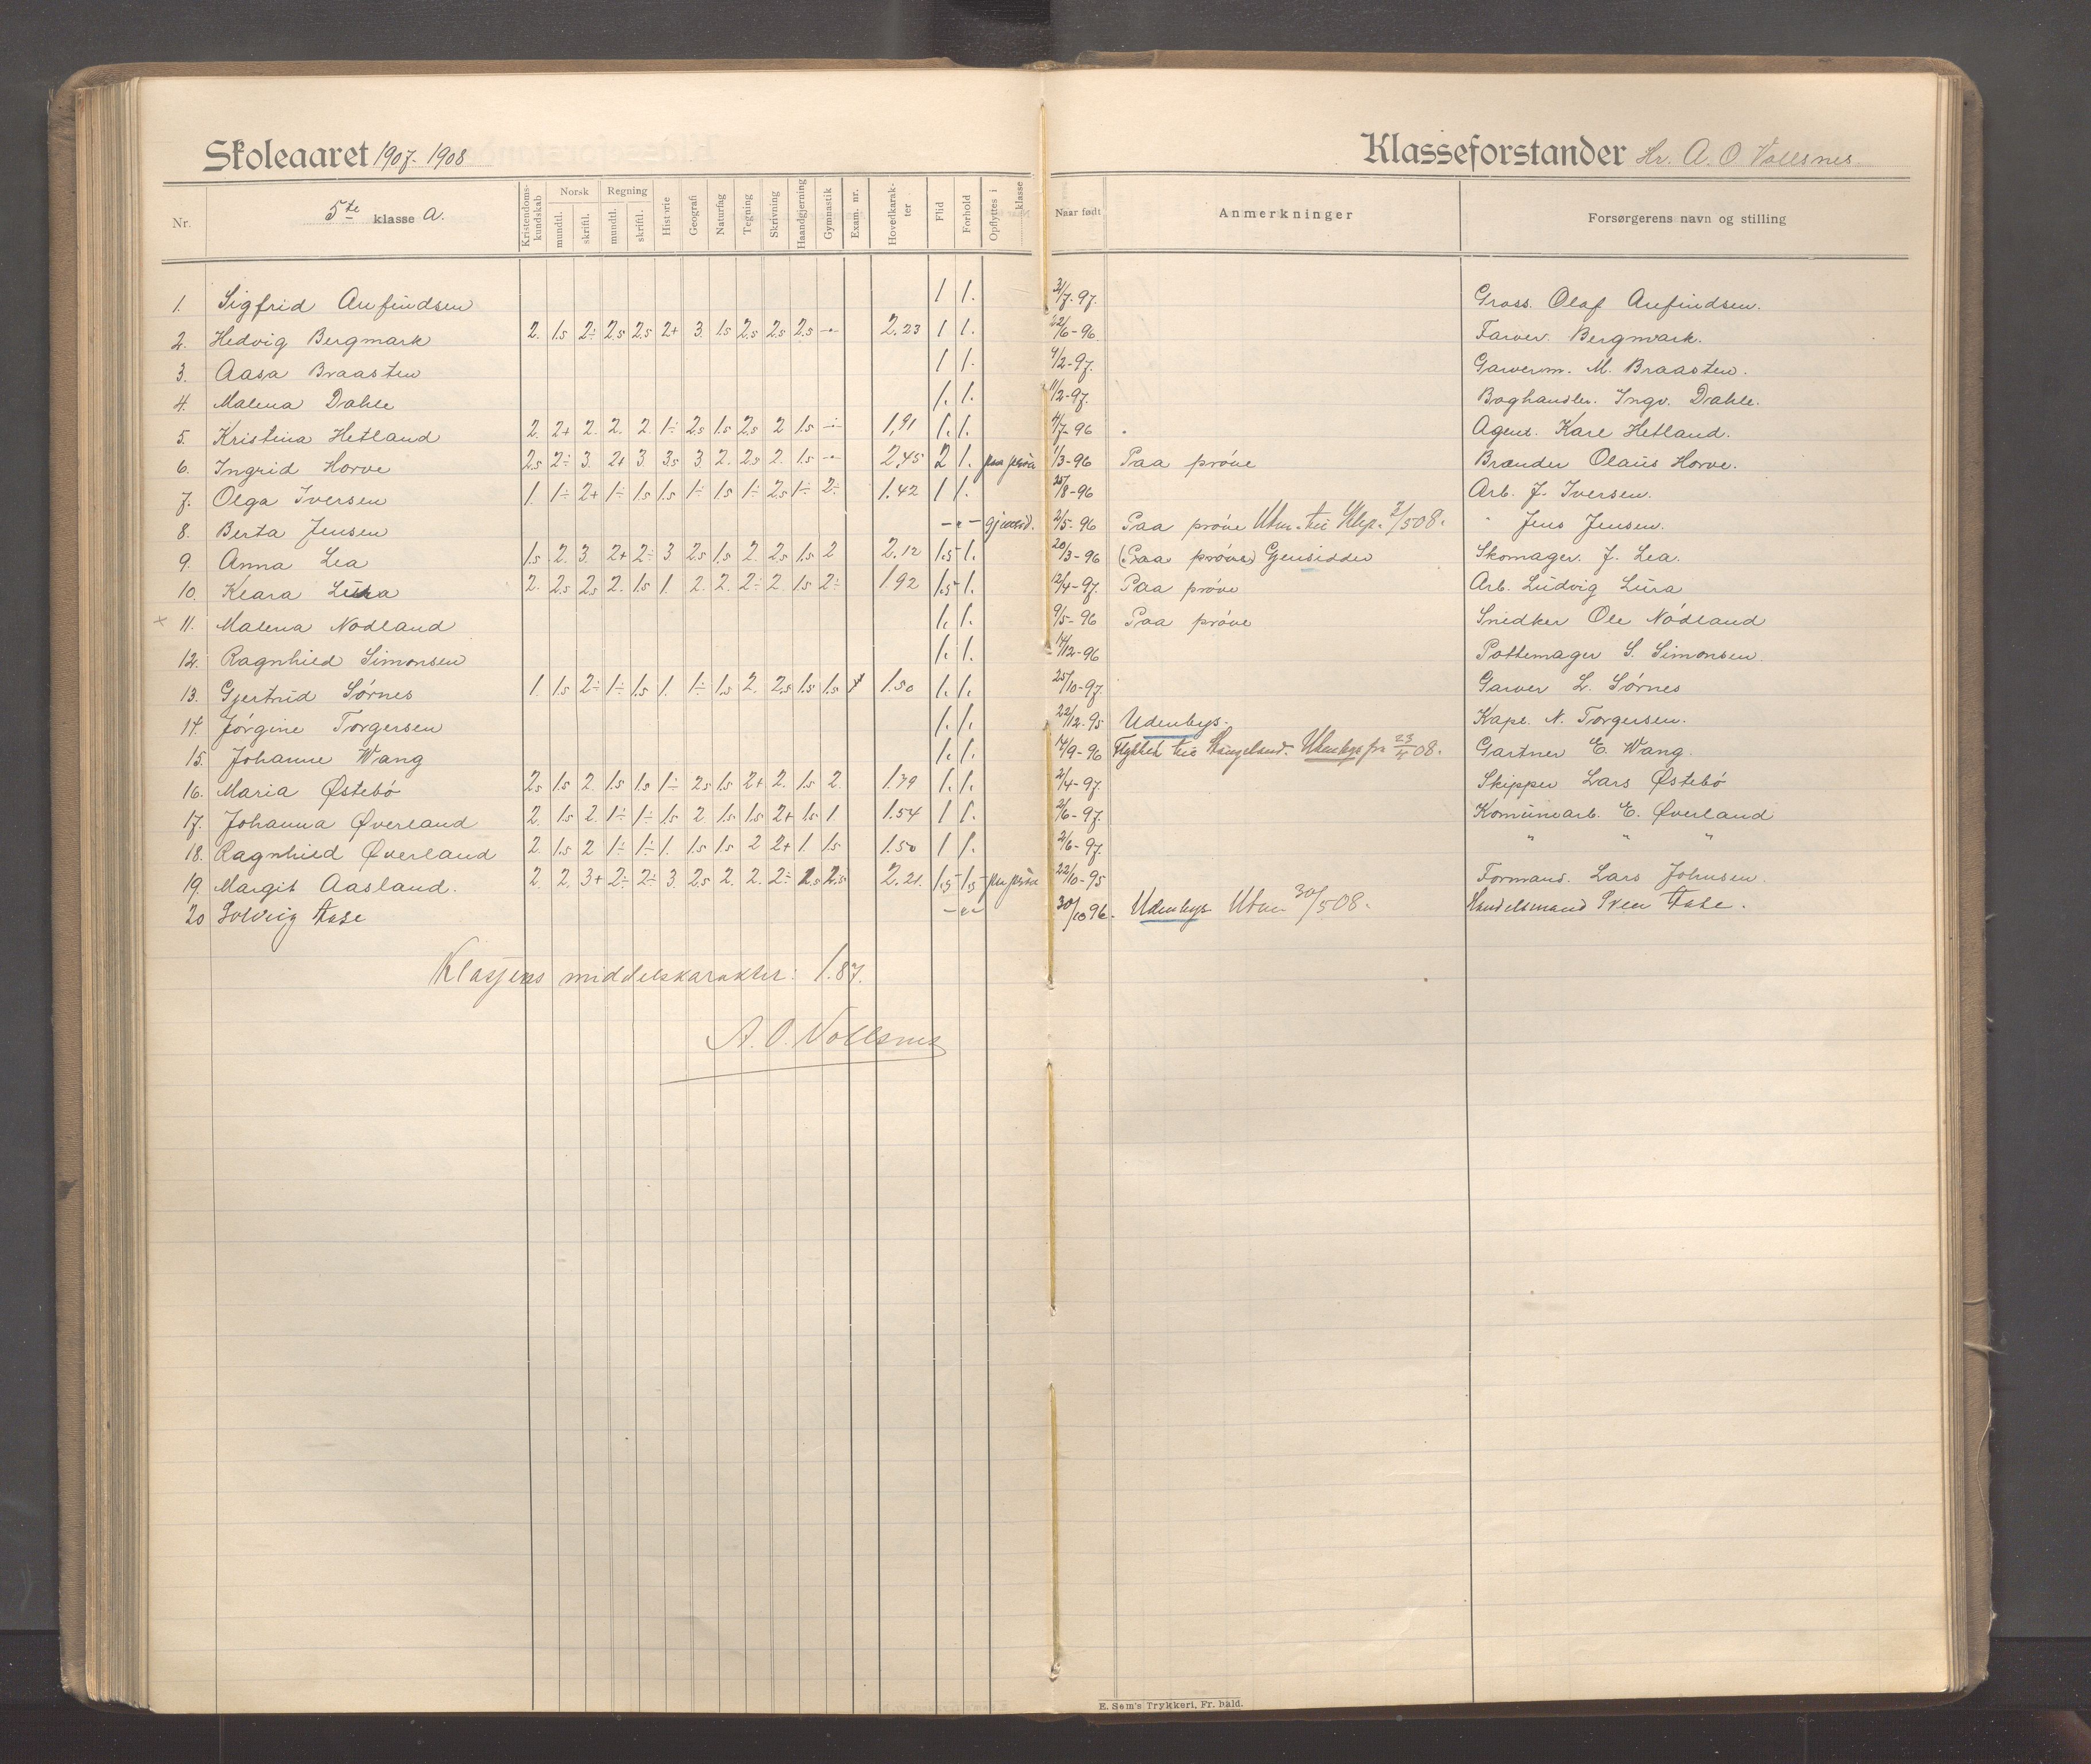 Skoleaaret 1907-1908
Klasseforstander Hr. A. O. Vollsnes
Nr. 5te klasse A. Kristendomskundskab Norsk mundtl. skriftl. Regning mundtl. skriftl. Historie Geografi Naturfag Tegning Skrivning Haandgjerning Gymnastik Exam. nr. Hovedkarakter Flid Forhold Opflyttes i klasse Naar født Anmerkninger Forsørgerens navn og stilling
1. Sigfrid Anfindsen 1 1. 31/7-97. Gross. Olaf Anfindsen.
2. Hedvig Bergmark 2. 1.5 2÷ 2.5 2.5 2+ 3 1.5 2.5 2.5 2.5 -"- 2,23 1 1. 22/6-96. Farver. Bergmark.
3. Aasa Braasten 1 1. 4/2-97. Garverm. M. Braasten.
4. Malena Dahle 1. 1. 11/2-97. Boghandler. Ingv. Dahle.
5. Kristina Hetland 2. 2+ 2. 2. 2. 1÷ 2.5 1.5 2.5 2 1.5 -"- 1,91 1. 1. 4/7-96 Agent. Karl Hetland.
6. Ingrid Horve 2.5 2÷ 3. 2+ 3. 3.5 3. 2. 2.5 2. 1.5 -"- 2,45 2 1. paa prøve 1/3-96 Paa prøve Brænder Olaus Horve.
7. Olga Iversen 1. 1÷ 2+ 1÷ 1.5 1.5 1÷ 1.5 1÷ 2.5 1÷ 2÷ 1.42 1 1. 25/8-96 Arb. J. Iversen.
8. Berta Jensen -"- gjensid. 2/5-96 Paa prøve Utm. til Klep. 2/5 08. " Jens Jensen.
9. Anna Lea 1.5 2. 3. 2+ 2÷ 3 2.5 1.5 2. 2.5 1.5 2 2.12 1.5 1. 20/3-96 (Paa prøve) Gjensidder Skomager. J. Lea.
10. Klara Lura 2. 2.5 2.5 2. 1.5 1. 2. 2. 2÷ 2. 1.5 2÷ 1.92 1.5 1. 12/4-97. Paa prøve Arb. Ludvig Lura
x 11. Malena Nodland 1. 1. 9/5-96 Paa prøve Snedker Ole Nødland
12. Ragnhild Simonsen 1. 1. 14/12-96 Pottemager S. Simonsen.
13. Gjertrud Sørnes 1. 1.5 2÷ 1÷ 1.5 1. 1÷ 1.5 2. 2.5 1.5 1.5 1.50 1. 1. 25/10-97. Garver L. Sørnes
14. Jørgine Torgersen 1. 1. 22/12-95 Udenbys. Kapt. N. Torgersen.
15. Johanne Wang 1. 1. 14/9-96 Flyttet til Skangeland. Udenbys fra 23/4 08. Gartner E. Wang.
16. Maria Østebø 2.5 1.5 2. 1.5 1.5 1÷ 2.5 1.5 2+ 2. 1.5 2. 1.79 1. 1. 2/4-97. Skipper Lars Østebø
17. Johanna Øverland 2. 1.5 2. 1÷ 1÷ 1.5 2. 1.5 1.5 2+ 1.5 1. 1.54 1 1. 2/6-97. Komunearb. E. Øverland
18. Ragnhild Øverland 2. 1.5 2 1÷ 1÷ 1. 1.5 1.5 2 2+ 1. 1.5 1.50 1 1. 2/6-97. " " "
19. Margit Aasland. 2. 2. 3+ 2÷ 2÷ 3. 2.5 2. 2. 2÷ 2.5 2.5 2,21. 1.5 1.5 paa prøve 22/10-95 Formand. Lars Johnsen.
20 Solveig Aase -"- 30/10 96. Udenbys Utm 30/5 08. Handelsmand Sven Aase.
Klassens middelskarakter: 1.87.
A. O. Vollsnes
E. Sem's Trykkeri, Fr.hald.